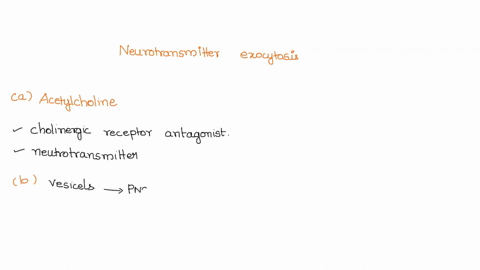 Neurotransmitter exocytosis
(a) Acetylcholine
✓ cholinergic receptor antagonist.
✓ neutrotransmitter
(b) vesicels →